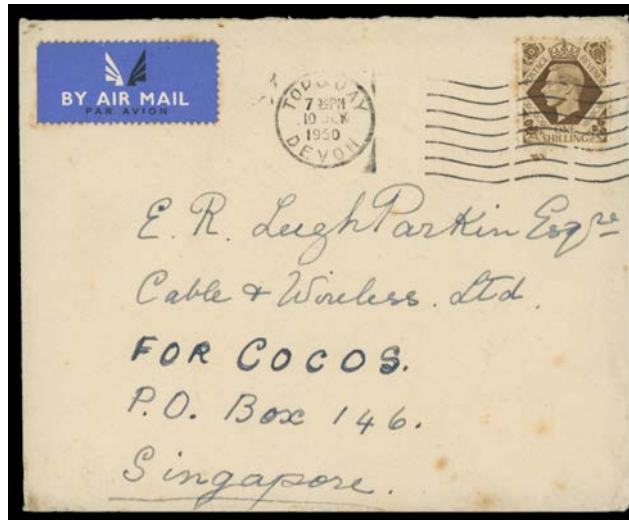 BY AIR MAIL
PAR AVION
7 PM
10
1950
DEVON
POSTAGE REVENUE
ONE
SHILLING
E. R. Leigh Parkin Esqre
Cable & Wireless. Ltd.
FOR COCOS.
P.O. Box 146.
Singapore.